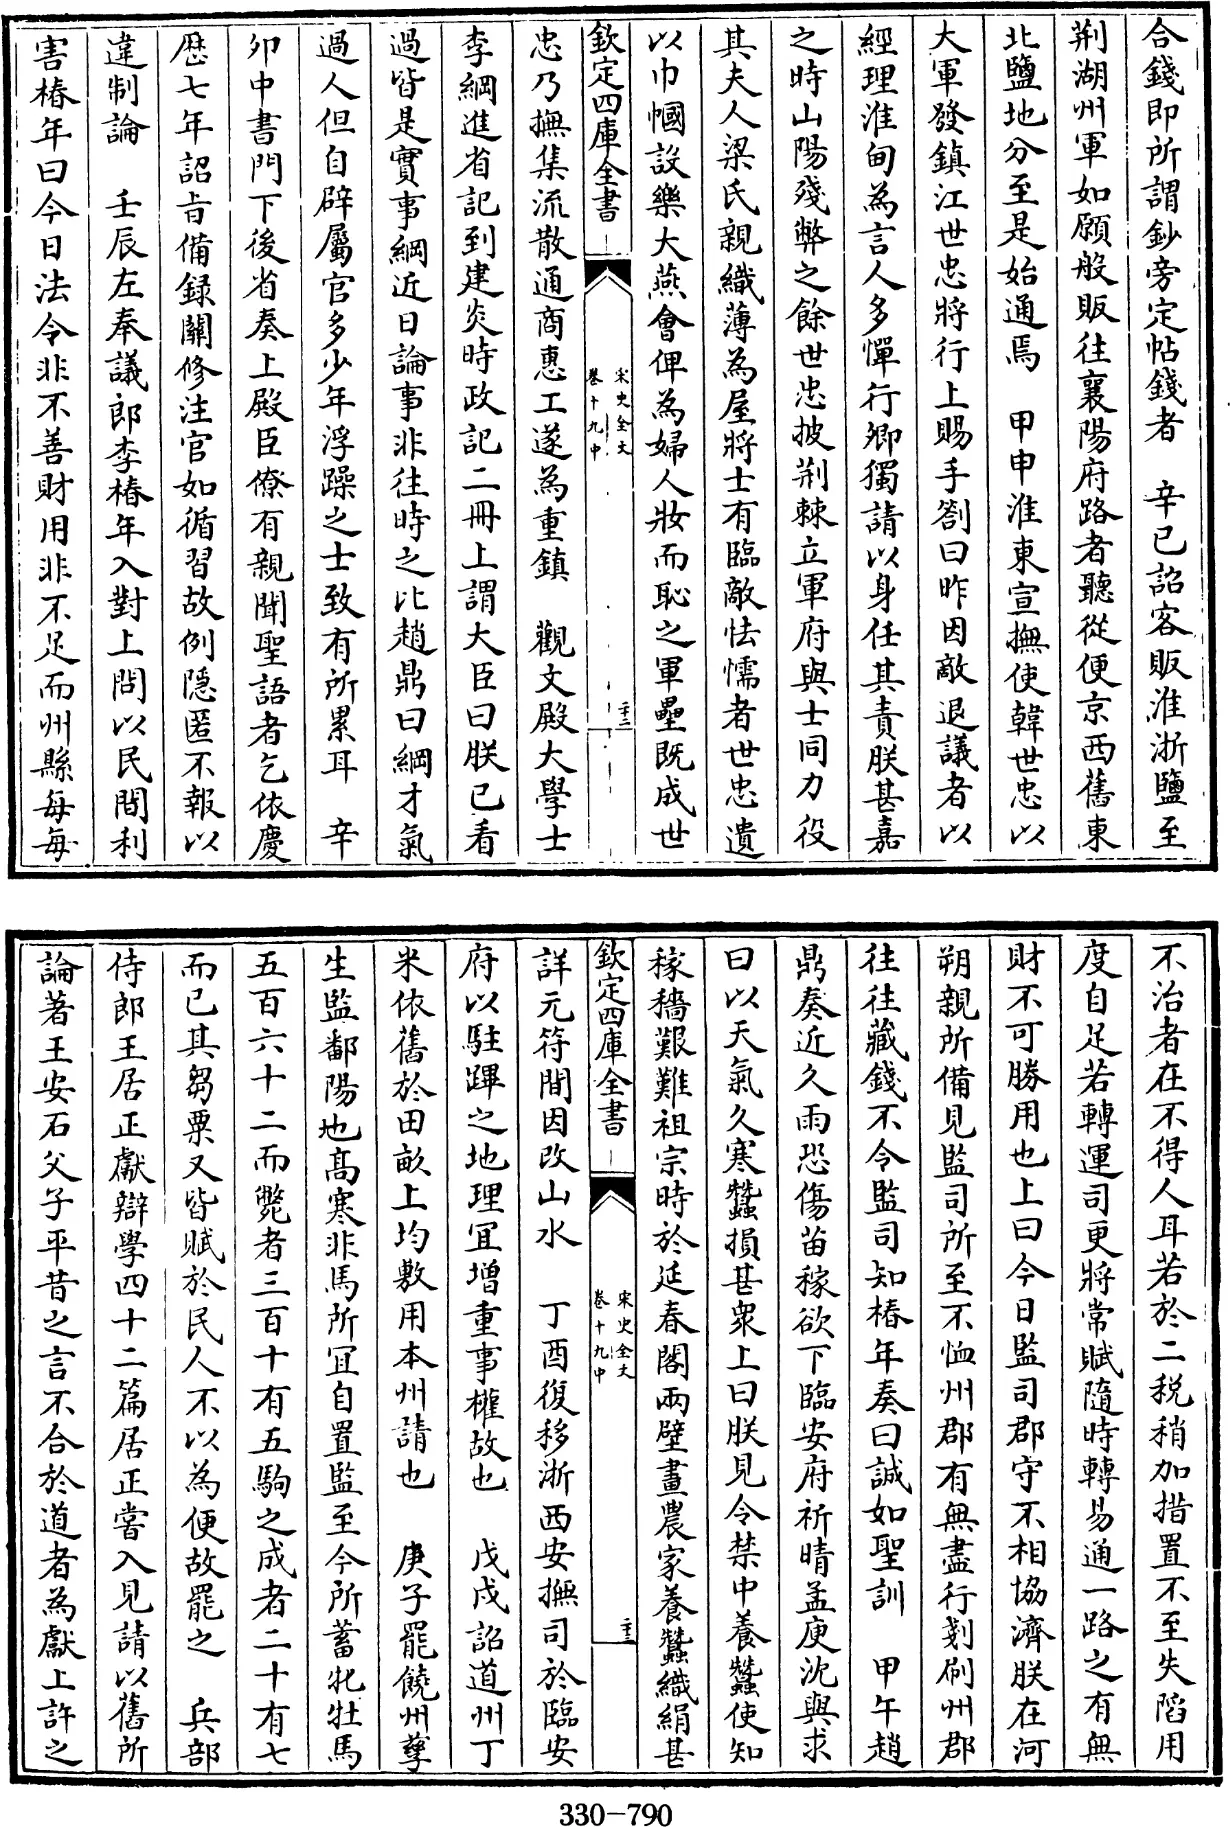 合錢即所謂鈔旁定帖錢者　辛巳詔客販淮浙鹽至
荆湖州軍如願般販往襄陽府路者聽從便京西舊東
北鹽地分至是始通焉　甲申淮東宣撫使韓世忠以
大軍發鎮江世忠將行上賜手劄曰昨因敵退議者以
經理淮甸為言人多憚行卿獨請以身任其責朕甚嘉
之時山陽殘弊之餘世忠披荆棘立軍府與士同力役
其夫人梁氏親織薄為屋將士有臨敵怯懦者世忠遺
以巾幗設樂大燕會俾為婦人妝而恥之軍壘既成世
欽定四庫全書
宋史全文
卷十九中
二十二
忠乃撫集流散通商惠工遂為重鎮　觀文殿大學士
李綱進省記到建炎時政記二冊上謂大臣曰朕已看
過皆是實事綱近日論事非往時之比趙鼎曰綱才氣
過人但自辟屬官多少年浮躁之士致有所累耳　辛
卯中書門下後省奏上殿臣僚有親聞聖語者乞依慶
歷七年詔旨備録關修注官如循習故例隠匿不報以
違制論　壬辰左奉議郎李椿年入對上問以民間利
害椿年曰今日法令非不善財用非不足而州縣每每
不治者在不得人耳若於二税稍加措置不至失陷用
度自足若轉運司更將常賦隨時轉易通一路之有無
財不可勝用也上曰今日監司郡守不相協濟朕在河
朔親所備見監司所至不恤州郡有無盡行刬刷州郡
往往藏錢不令監司知椿年奏曰誠如聖訓　甲午趙
鼎奏近久雨恐傷苗稼欲下臨安府祈晴孟庾沈與求
曰以天氣久寒蠶損甚衆上曰朕見令禁中養蠶使知
稼穡艱難祖宗時於延春閣兩壁畫農家養蠶織絹甚
欽定四庫全書
宋史全文
卷十九中
二十三
詳元符間因改山水　丁酉復移浙西安撫司於臨安
府以駐蹕之地理宜增重事權故也　戊戌詔道州丁
米依舊於田畝上均敷用本州請也　庚子罷饒州孳
生監鄱陽地髙寒非馬所宜自置監至今所蓄牝牡馬
五百六十二而斃者三百十有五駒之成者二十有七
而已其芻粟又皆賦於民人不以為便故罷之　兵部
侍郎王居正獻辯學四十二篇居正嘗入見請以舊所
論著王安石父子平昔之言不合於道者為獻上許之
330-790